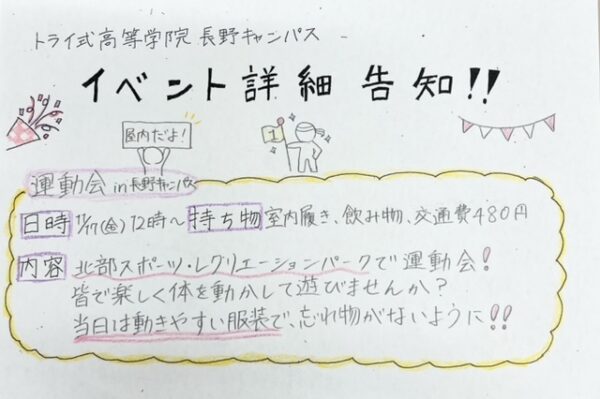 トライ式高等学院 長野キャンパス
イベント詳細 告知!!
屋内だよ!
1
運動会 in 長野キャンパス
日時 11/17(金) 12時〜 持ち物 室内履き、飲み物、交通費480円
内容 北部スポーツ・レクリエーションパークで運動会!
皆で楽しく体を動かして遊びませんか?
当日は動きやすい服装で、忘れ物がないように!!